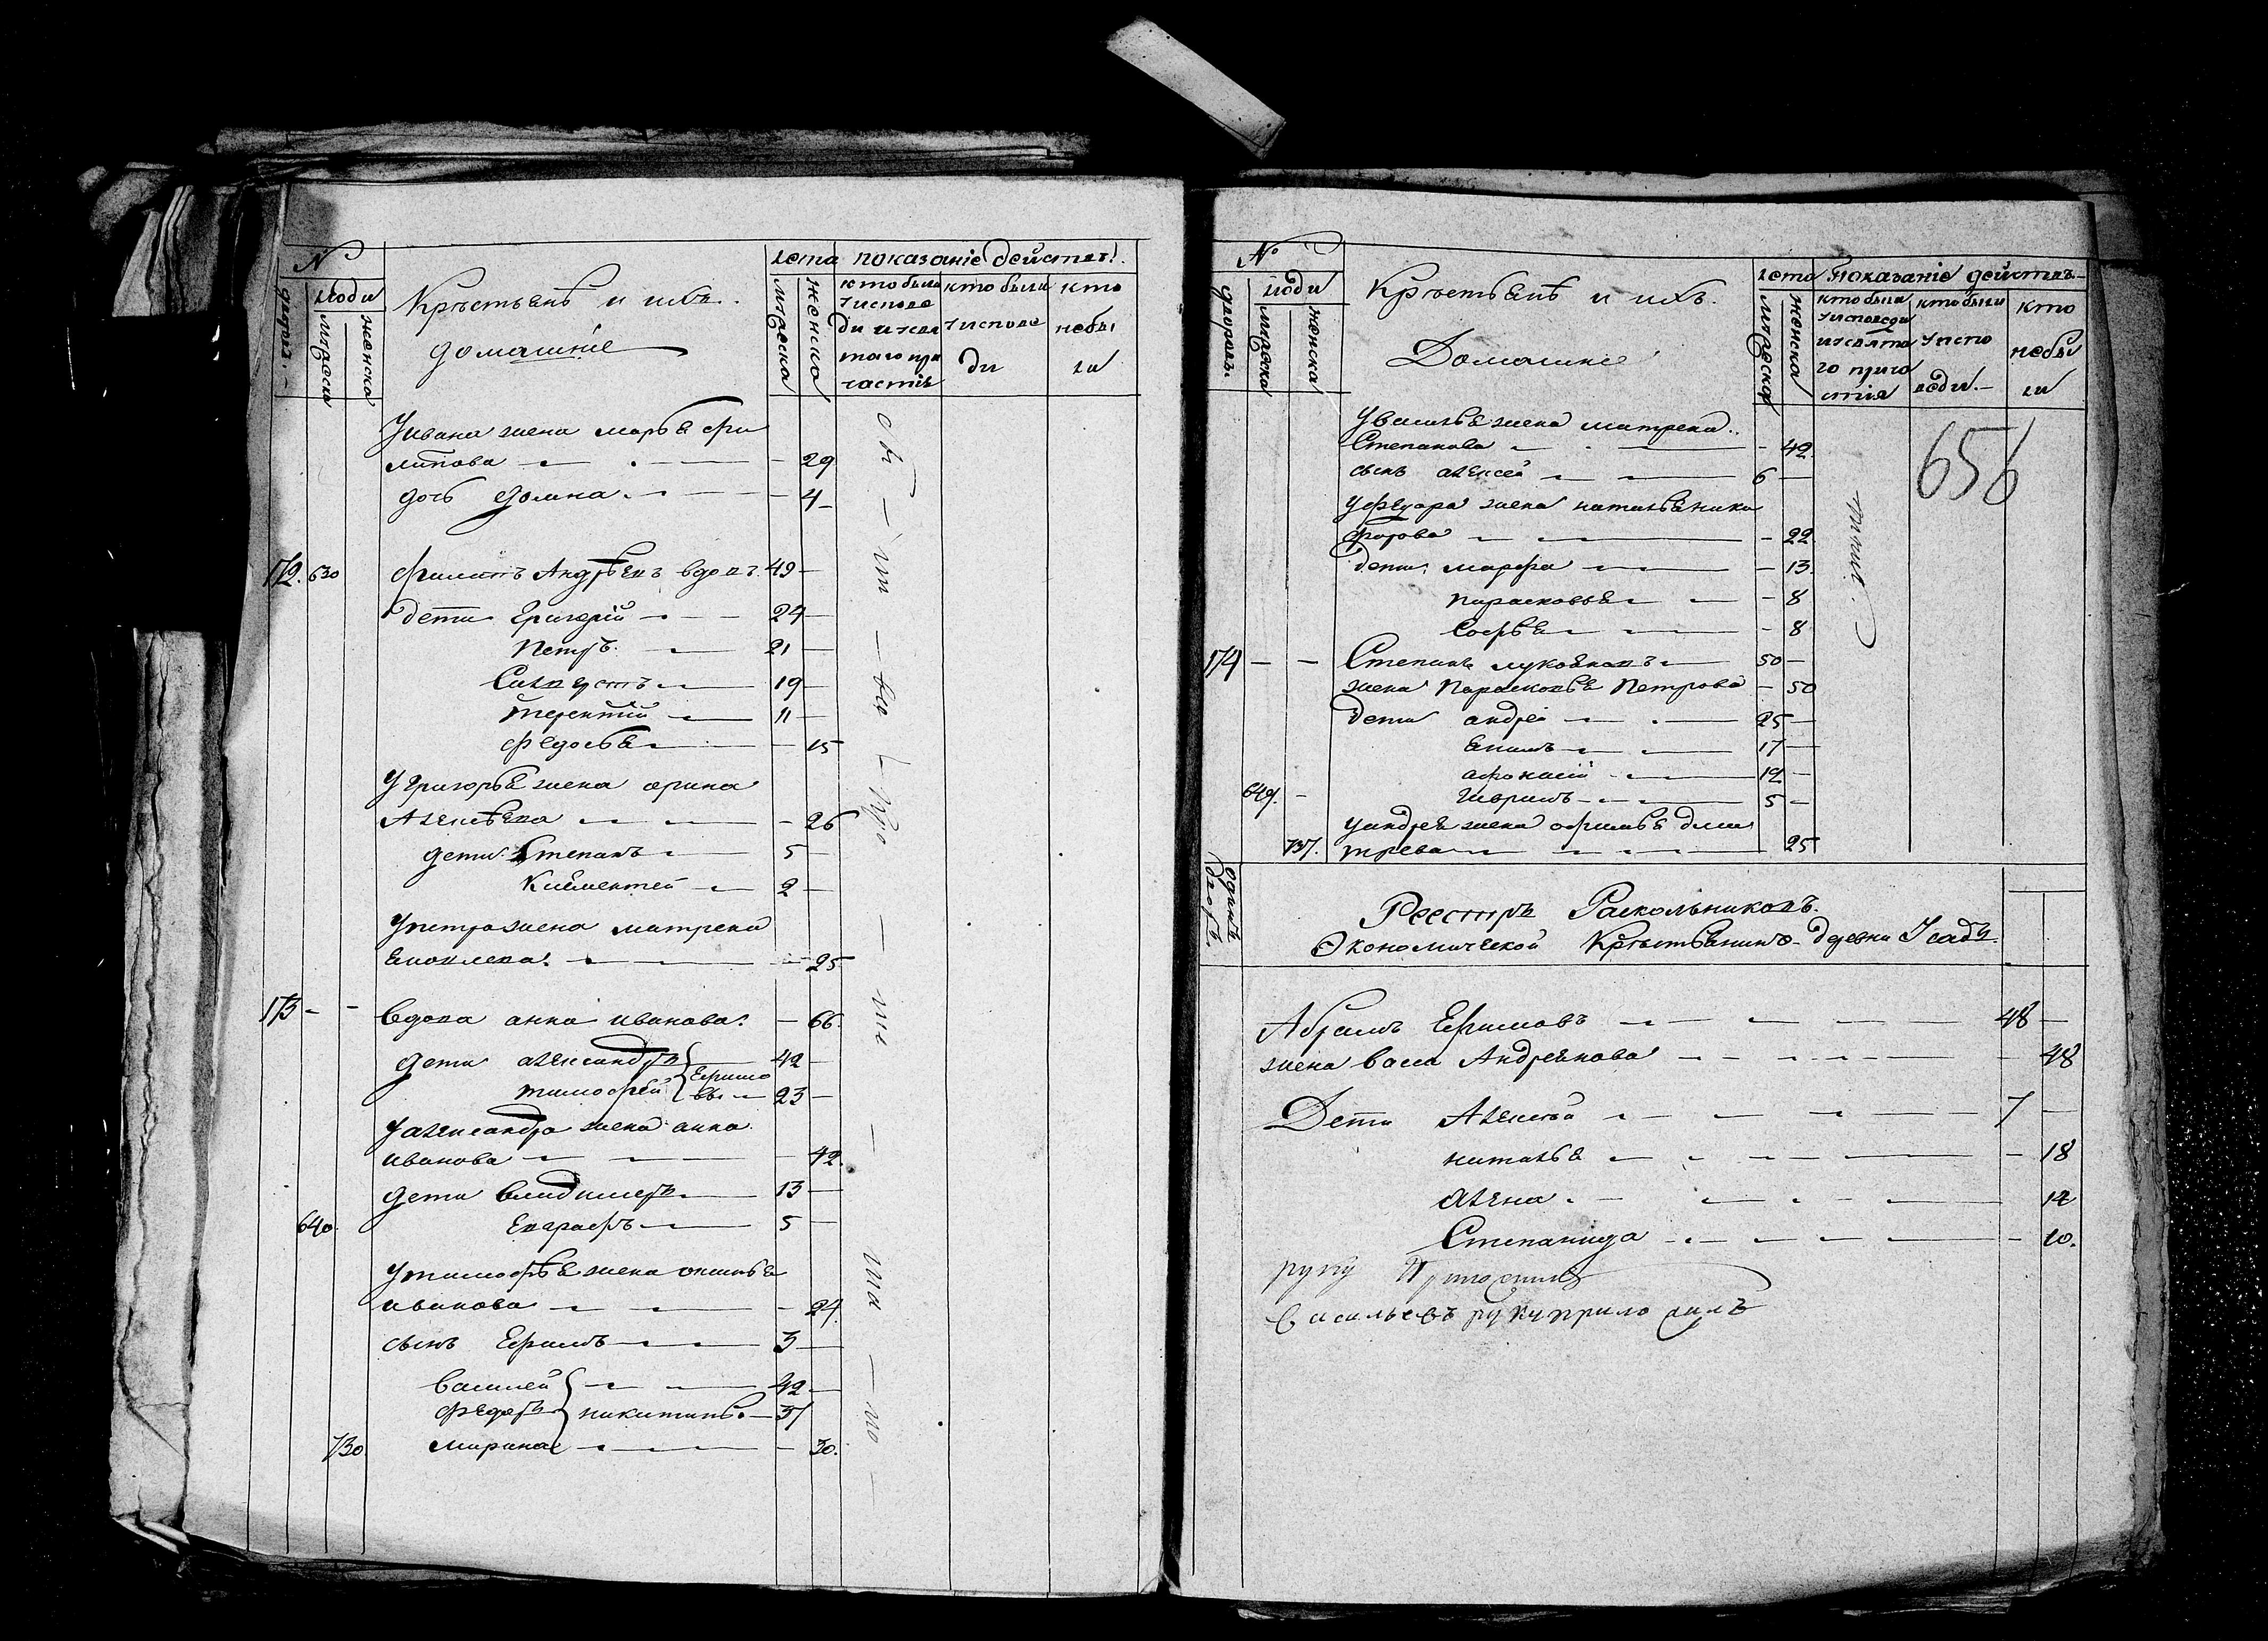 №
дворовъ
люди
мужеска
женска
Крестьяне и ихъ
домашніе
лета показаніе действъ
мужеска
женска
кто были
у испове
ди и свя
таго при
частія
кто были
у испове
ди
кто
небы
ли
У ивана жена марья фи
липова — 29
дочь домна — 4
172. 630 филипъ Андреевъ вдовъ 49
дети григорій — 24
Петръ — 21
Силвестъ — 19
терентій — 11
федосья — 15
У григорья жена арина
Алексеева — 26
дети Степанъ — 5
Климентей — 2
У петра жена матрена
яковлева — 25
173 — — вдова анна иванова — 66
дети александръ — 42
тимофей } Ефимо
вы — 23
У александра жена анна
иванова — 42
дети владимеръ — 13
640 Евграфъ — 5
У тимофея жена аксинья
иванова — 24
сынъ Ефимъ — 3
василей — 42
федоръ } никитины — 37
730 марина — 30
№
дворовъ
люди
мужеска
женска
Крестьяне и ихъ
Домашніе
лета показаніе действъ
мужеска
женска
кто были
у исповеди
и свята
го прича
стія
кто были
у испо
веди
кто
небы
ли
656
У василья жена матрена
Степанова — 42
сынъ алексей — 6
У федора жена наталья ники
форова — 22
дети марфа — 13
парасковья — 8
Софья — 8
174 — — Степанъ лукояновъ — 50
жена Парасковья Петрова — 50
дети андрей — 25
екимъ — 17
афонасій — 12
649 — гаврилъ — 5
У андрея жена офимья дми
737. трева — 25
одинъ
дворъ
Реестръ Раскольниковъ.
Экономической Крестьянинъ деревни Усады
Абрамъ Ефимовъ — 48
жена васса Андреянова — 48
Дети Алексей — 7
наталья — 18
алена — 14
Степанида — 10.
руку Приложилъ
васильевъ руку приложилъ